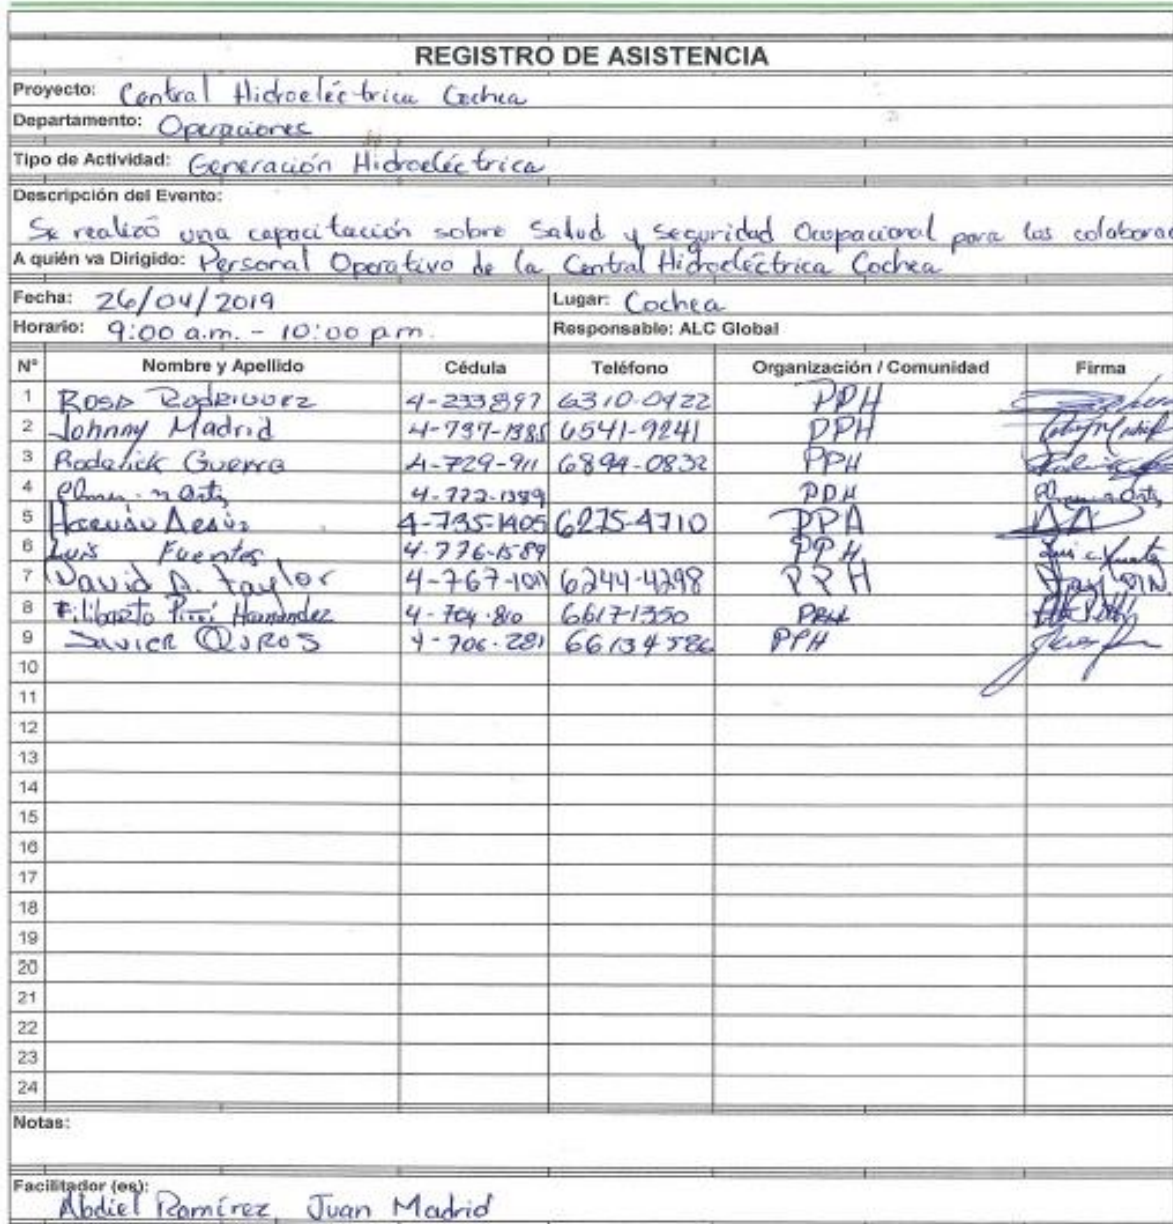 REGISTRO DE ASISTENCIA
Proyecto: Central Hidroeléctrica Cochea
Departamento: Operaciones
Tipo de Actividad: Generación Hidroeléctrica
Descripción del Evento:
Se realizó una capacitación sobre Salud y Seguridad Ocupacional para los colaborad
A quién va Dirigido: Personal Operativo de la Central Hidroeléctrica Cochea
Fecha: 26/04/2019 Lugar: Cochea
Horario: 9:00 a.m. - 10:00 p.m. Responsable: ALC Global
Nº Nombre y Apellido Cédula Teléfono Organización / Comunidad Firma
1 Rosa Rodriguez 4-233897 6310-0422 PPH
2 Johnny Madrid 4-737-1385 6541-9241 PPH
3 Roderick Guerra 4-729-911 6894-0832 PPH
4 4-772-1389 PPH
5 4-735-1405 6275-4710 PPA
6 Luis Fuentes 4-776-1589 PPH
7 David A. Taylor 4-767- 6244-4298 PPH
8 Hernández 4-704-810 66171350 PPH
9 Javier Quiros 4-706-281 66134586 PPH
10
11
12
13
14
15
16
17
18
19
20
21
22
23
24
Notas:
Facilitador (es):
Abdiel Ramírez Juan Madrid